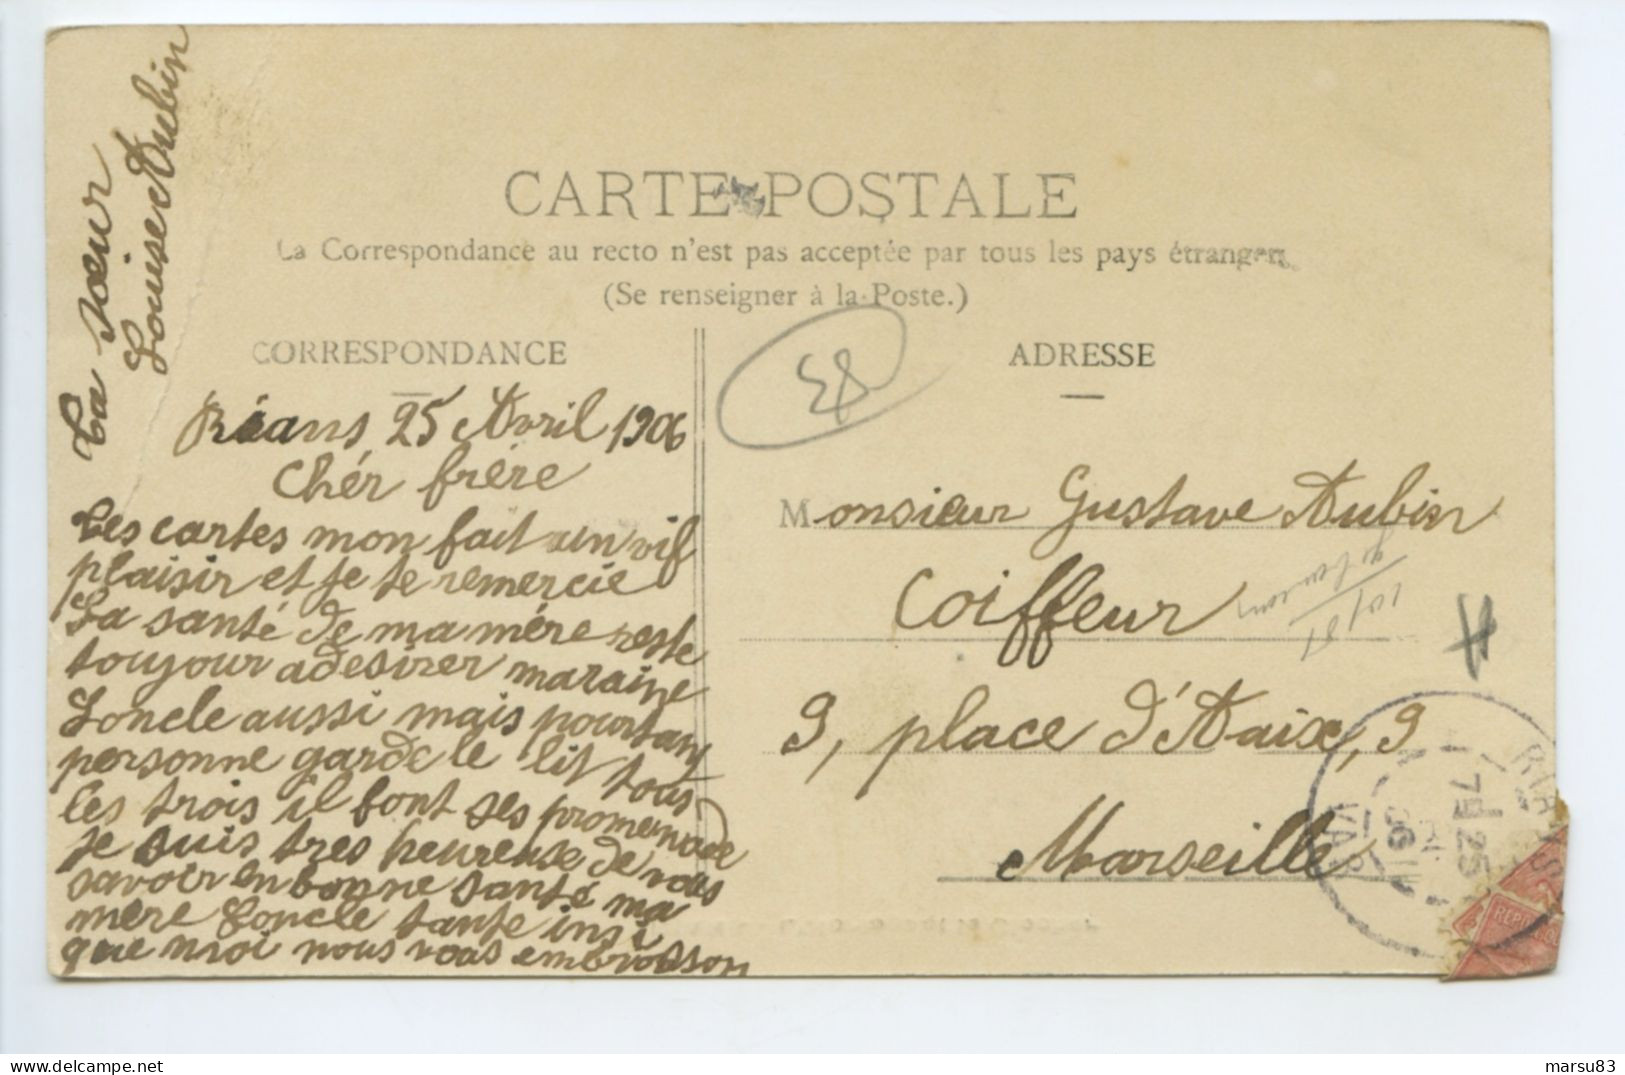 CARTE POSTALE
La Correspondance au recto n'est pas acceptée par tous les pays étrangers
(Se renseigner à la Poste.)
CORRESPONDANCE
Rians 25 Avril 1906
Chér frère
tes cartes mon fait un vif
plaisir et je te remercie
La santé de ma mère reste
toujour a desirer maraine
Loncle aussi mais pourtant
personne garde le lit tous
les trois il font ses promenade
je suis tres heureuse de vous
savoir en bonne santé ma
mère Loncle tante insi
que moi nous vous embrasson
ta sœur
Louise Aubin
58
ADRESSE
Monsieur Gustave Aubin
Coiffeur
9, place d'Aix, 9
Marseille
RIANS
7H 25
06
VAR
REPUBLIQUE
marsu83